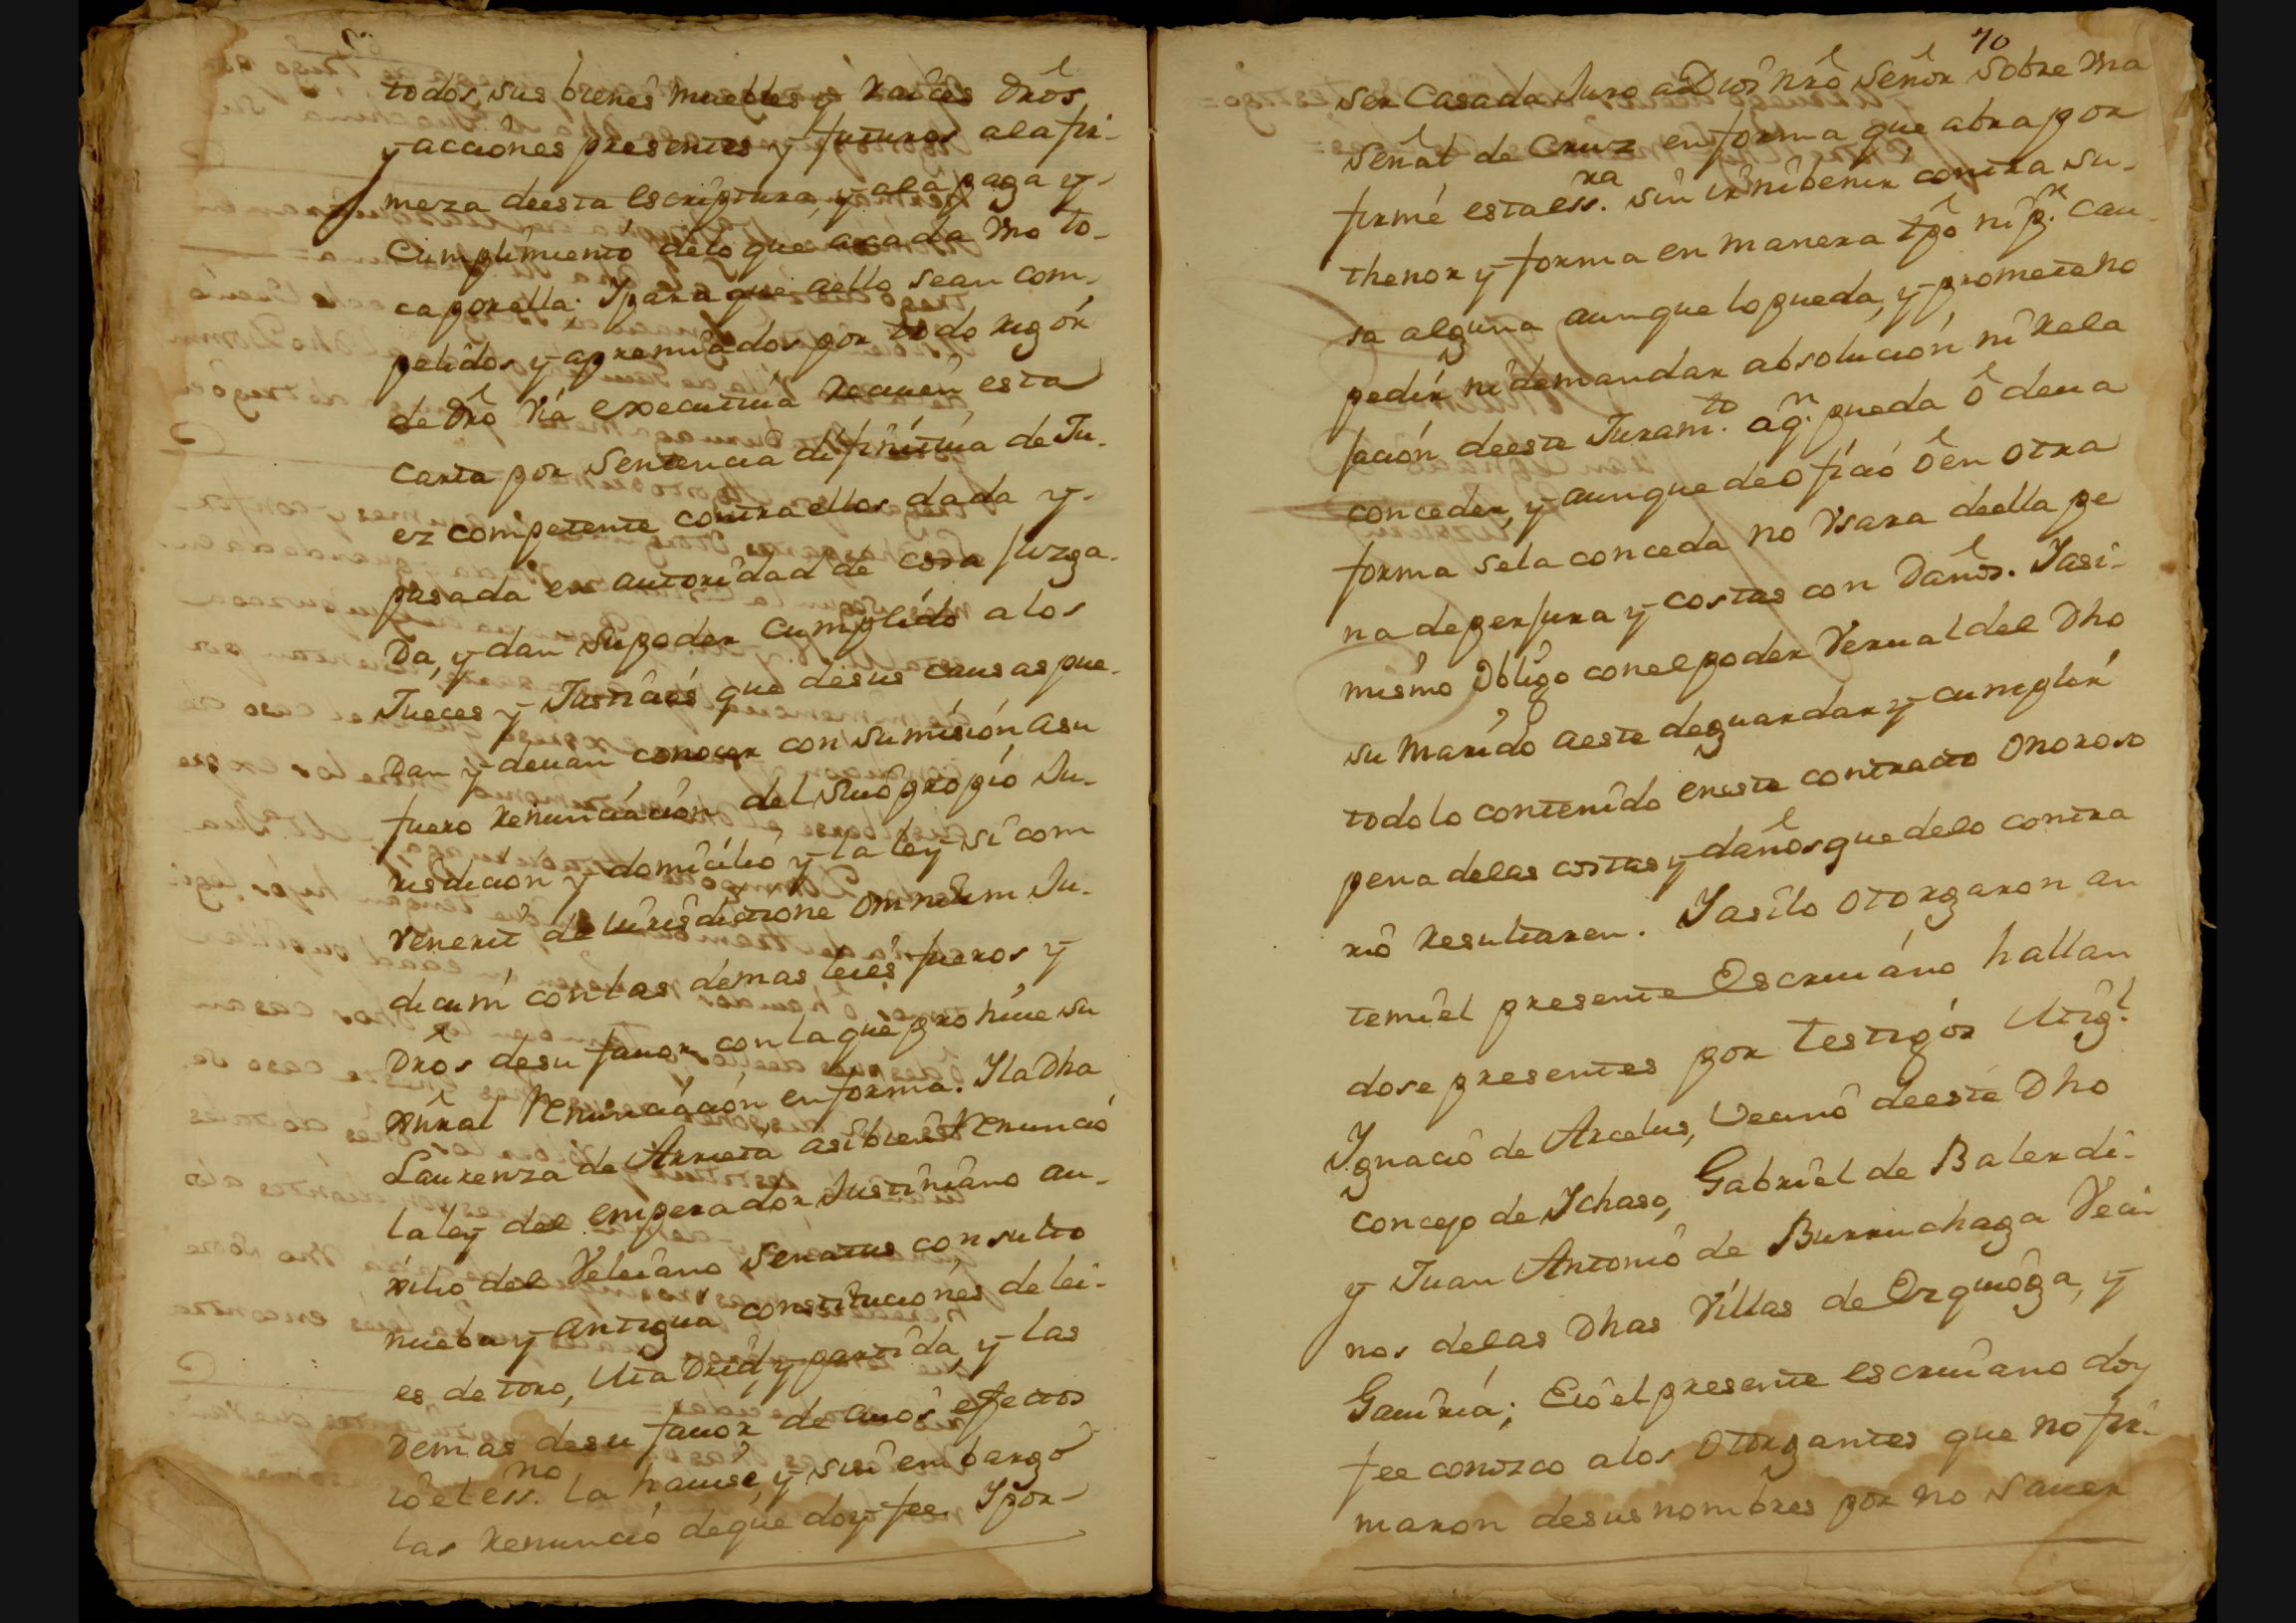 todos sus bienes muebles y raices dros
y acciones presentes y futuros ala fir-
meza deesta escriptura, y ala paga y-
Cumplimiento delo que acada vno to-
ca porella: Ypara que aello sean com-
pelidos y apremiados por todo rigor
de dro via executiua reciuen esta
carta por Sentencia difinitiua de Ju-
ez competente contra ellos dada y-
pasada en autoridad de cosa juzga-
Da, y dan su poder cumplido alos
Jueces y Justicias que desus causas pue-
Dan y deuan conocer con sumision asu
fuero renunciación del suio propio Ju-
risdicion y domicilio y la ley si com
venerit de iurisdictione omnium Ju-
dicum con las demas leies fueros y
Dros desu fauor con la que prohiue su
xural renunciación en forma. Yla Dha
Laurenza de Arrieta asibien renunció
la ley del emperador Justiniano au-
xilio del Veleiano Senatus consulto
nueba y antigua constituciones de lei-
es de toro, Madrid y partida, y las
Demas desu fauor de cuios efectos
io el ess.no la hauise, y sin embargo
las renunció deque doy fee. Ypor-
70
ser Casada Juro a Dios nro Señor sobre vna
señal de Cruz en forma que abra por
firme esta ess.ra sin ir ni benir contra su-
thenor y forma en manera tpo ni p.r cau-
sa alguna aunque lo pueda, y promete no
pedir ni demandar absolución ni rela
jación deeste Juram.to a q.n pueda ó deua
conceder, y aunque de oficio ó en otra
forma sela conceda no vsara deella pe
na de perjura y costas con Daños. Yasi-
mismo obligo con el poder verual del Dho
su marido aeste deguardar y cumplir
todo lo contenido eneste contracto onoroso
pena delas costas y daños que delo contra
rio resultaren. Yasilo otorgaron an
temi el presente Escriuano hallan
dose presentes por testigos Mig.l
Ygnacio de Arcelus, Vecino deeste Dho
concejo de Ychaso, Gabriel de Balerdi-
y Juan Antonio de Burruchaga Veci-
nos delas Dhas Villas de Ezquioga, y
Gauiria; Eio el presente escriuano doy
fee conozco alos otorgantes que no fir-
maron desus nombres por no sauer